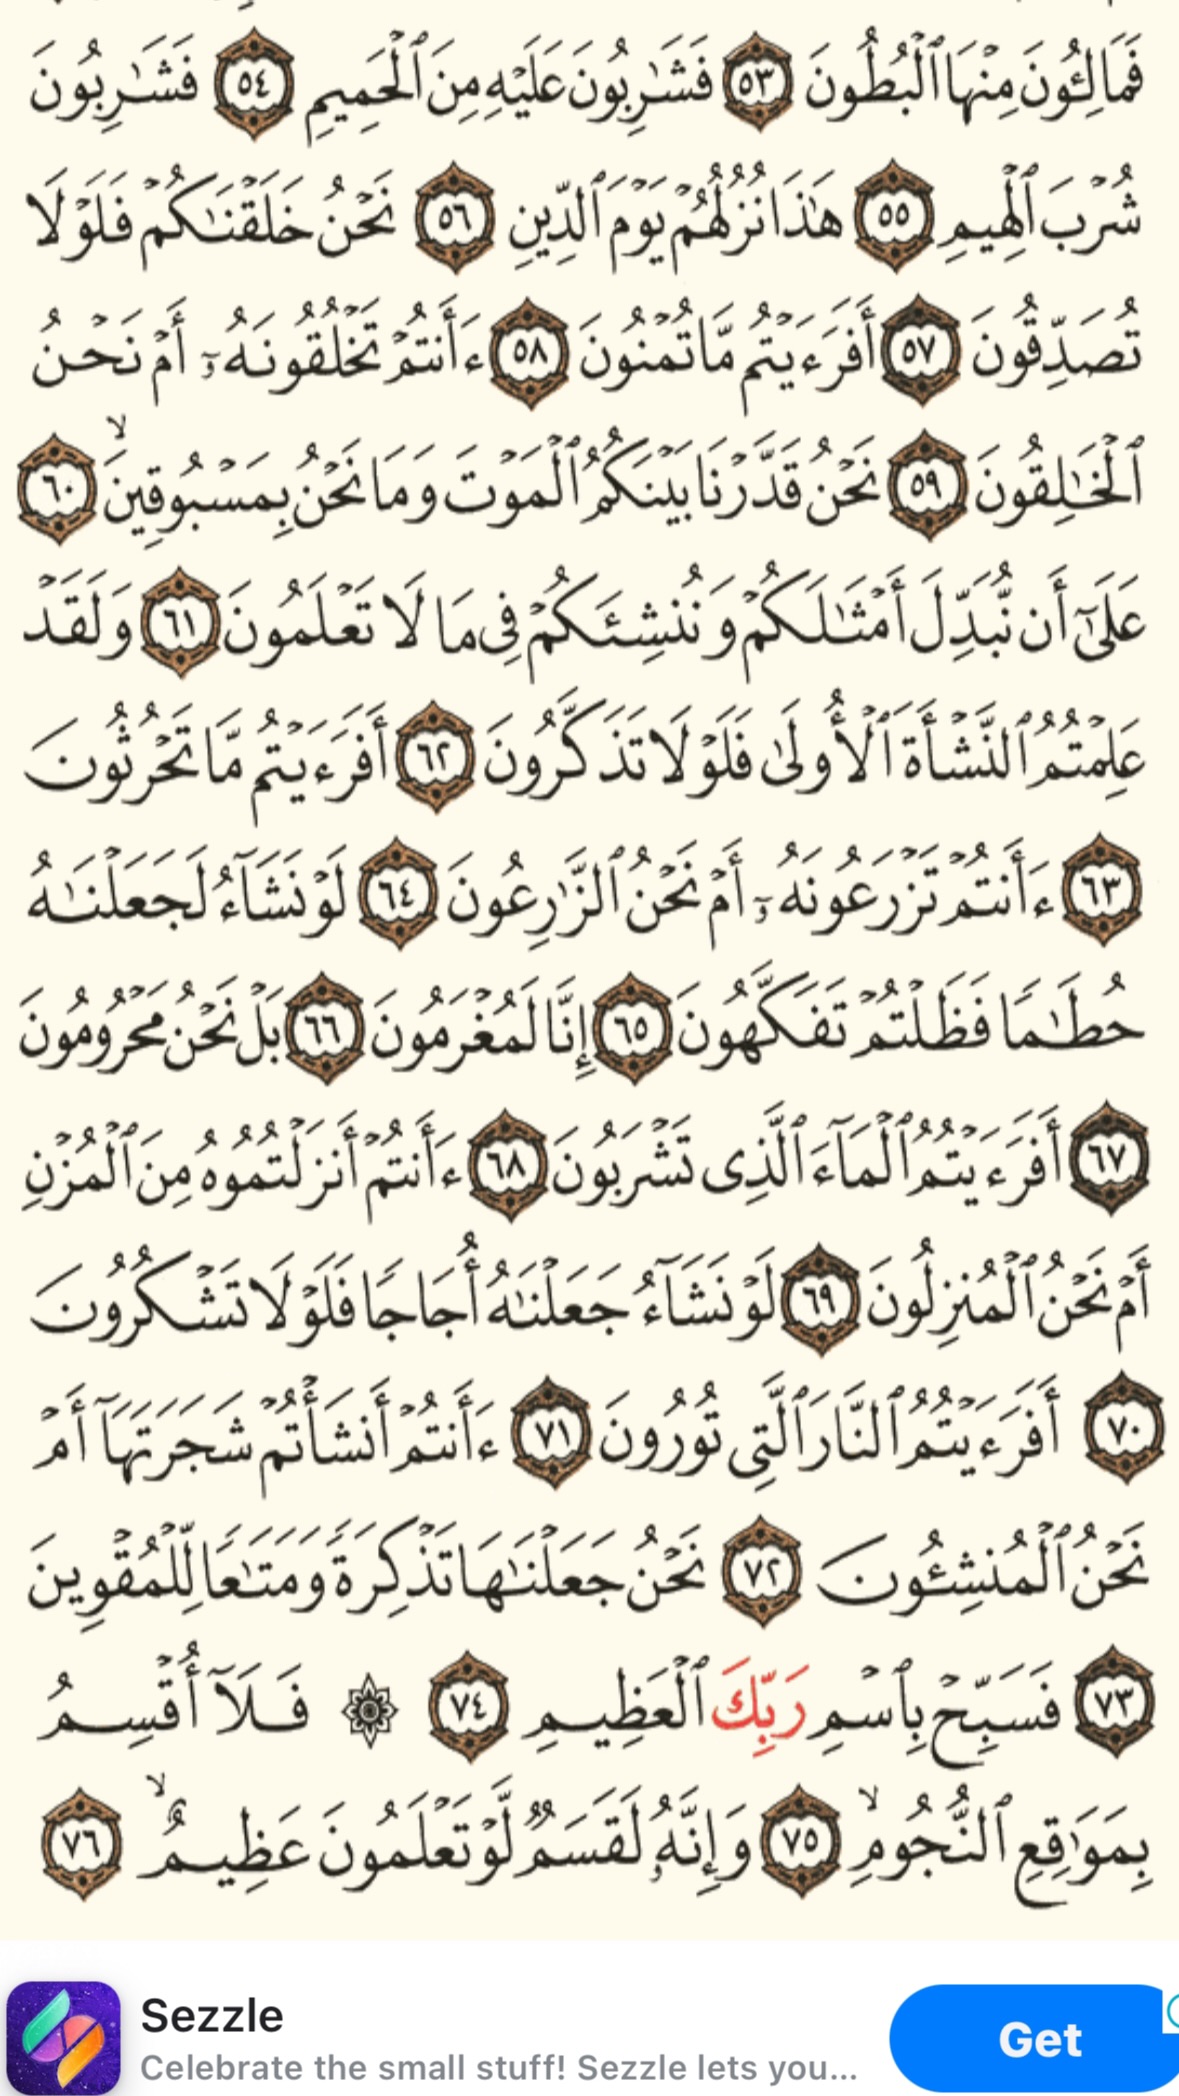 فَمَالِـُٔونَ مِنْهَا ٱلْبُطُونَ ٥٣ فَشَٰرِبُونَ عَلَيْهِ مِنَ ٱلْحَمِيمِ ٥٤ فَشَٰرِبُونَ
شُرْبَ ٱلْهِيمِ ٥٥ هَٰذَا نُزُلُهُمْ يَوْمَ ٱلدِّينِ ٥٦ نَحْنُ خَلَقْنَٰكُمْ فَلَوْلَا
تُصَدِّقُونَ ٥٧ أَفَرَءَيْتُم مَّا تُمْنُونَ ٥٨ ءَأَنتُمْ تَخْلُقُونَهُۥٓ أَمْ نَحْنُ
ٱلْخَٰلِقُونَ ٥٩ نَحْنُ قَدَّرْنَا بَيْنَكُمُ ٱلْمَوْتَ وَمَا نَحْنُ بِمَسْبُوقِينَ ۙ ٦٠
عَلَىٰٓ أَن نُّبَدِّلَ أَمْثَٰلَكُمْ وَنُنشِئَكُمْ فِى مَا لَا تَعْلَمُونَ ٦١ وَلَقَدْ
عَلِمْتُمُ ٱلنَّشْأَةَ ٱلْأُولَىٰ فَلَوْلَا تَذَكَّرُونَ ٦٢ أَفَرَءَيْتُم مَّا تَحْرُثُونَ
٦٣ ءَأَنتُمْ تَزْرَعُونَهُۥٓ أَمْ نَحْنُ ٱلزَّٰرِعُونَ ٦٤ لَوْ نَشَآءُ لَجَعَلْنَٰهُ
حُطَٰمًا فَظَلْتُمْ تَفَكَّهُونَ ٦٥ إِنَّا لَمُغْرَمُونَ ٦٦ بَلْ نَحْنُ مَحْرُومُونَ
٦٧ أَفَرَءَيْتُمُ ٱلْمَآءَ ٱلَّذِى تَشْرَبُونَ ٦٨ ءَأَنتُمْ أَنزَلْتُمُوهُ مِنَ ٱلْمُزْنِ
أَمْ نَحْنُ ٱلْمُنزِلُونَ ٦٩ لَوْ نَشَآءُ جَعَلْنَٰهُ أُجَاجًا فَلَوْلَا تَشْكُرُونَ
٧٠ أَفَرَءَيْتُمُ ٱلنَّارَ ٱلَّتِى تُورُونَ ٧١ ءَأَنتُمْ أَنشَأْتُمْ شَجَرَتَهَآ أَمْ
نَحْنُ ٱلْمُنشِـُٔونَ ٧٢ نَحْنُ جَعَلْنَٰهَا تَذْكِرَةً وَمَتَٰعًا لِّلْمُقْوِينَ
٧٣ فَسَبِّحْ بِٱسْمِ رَبِّكَ ٱلْعَظِيمِ ٧٤ ۞ فَلَآ أُقْسِمُ
بِمَوَٰقِعِ ٱلنُّجُومِ ۙ ٧٥ وَإِنَّهُۥ لَقَسَمٌ لَّوْ تَعْلَمُونَ عَظِيمٌ ۙ ٧٦
Sezzle
Celebrate the small stuff! Sezzle lets you...
Get